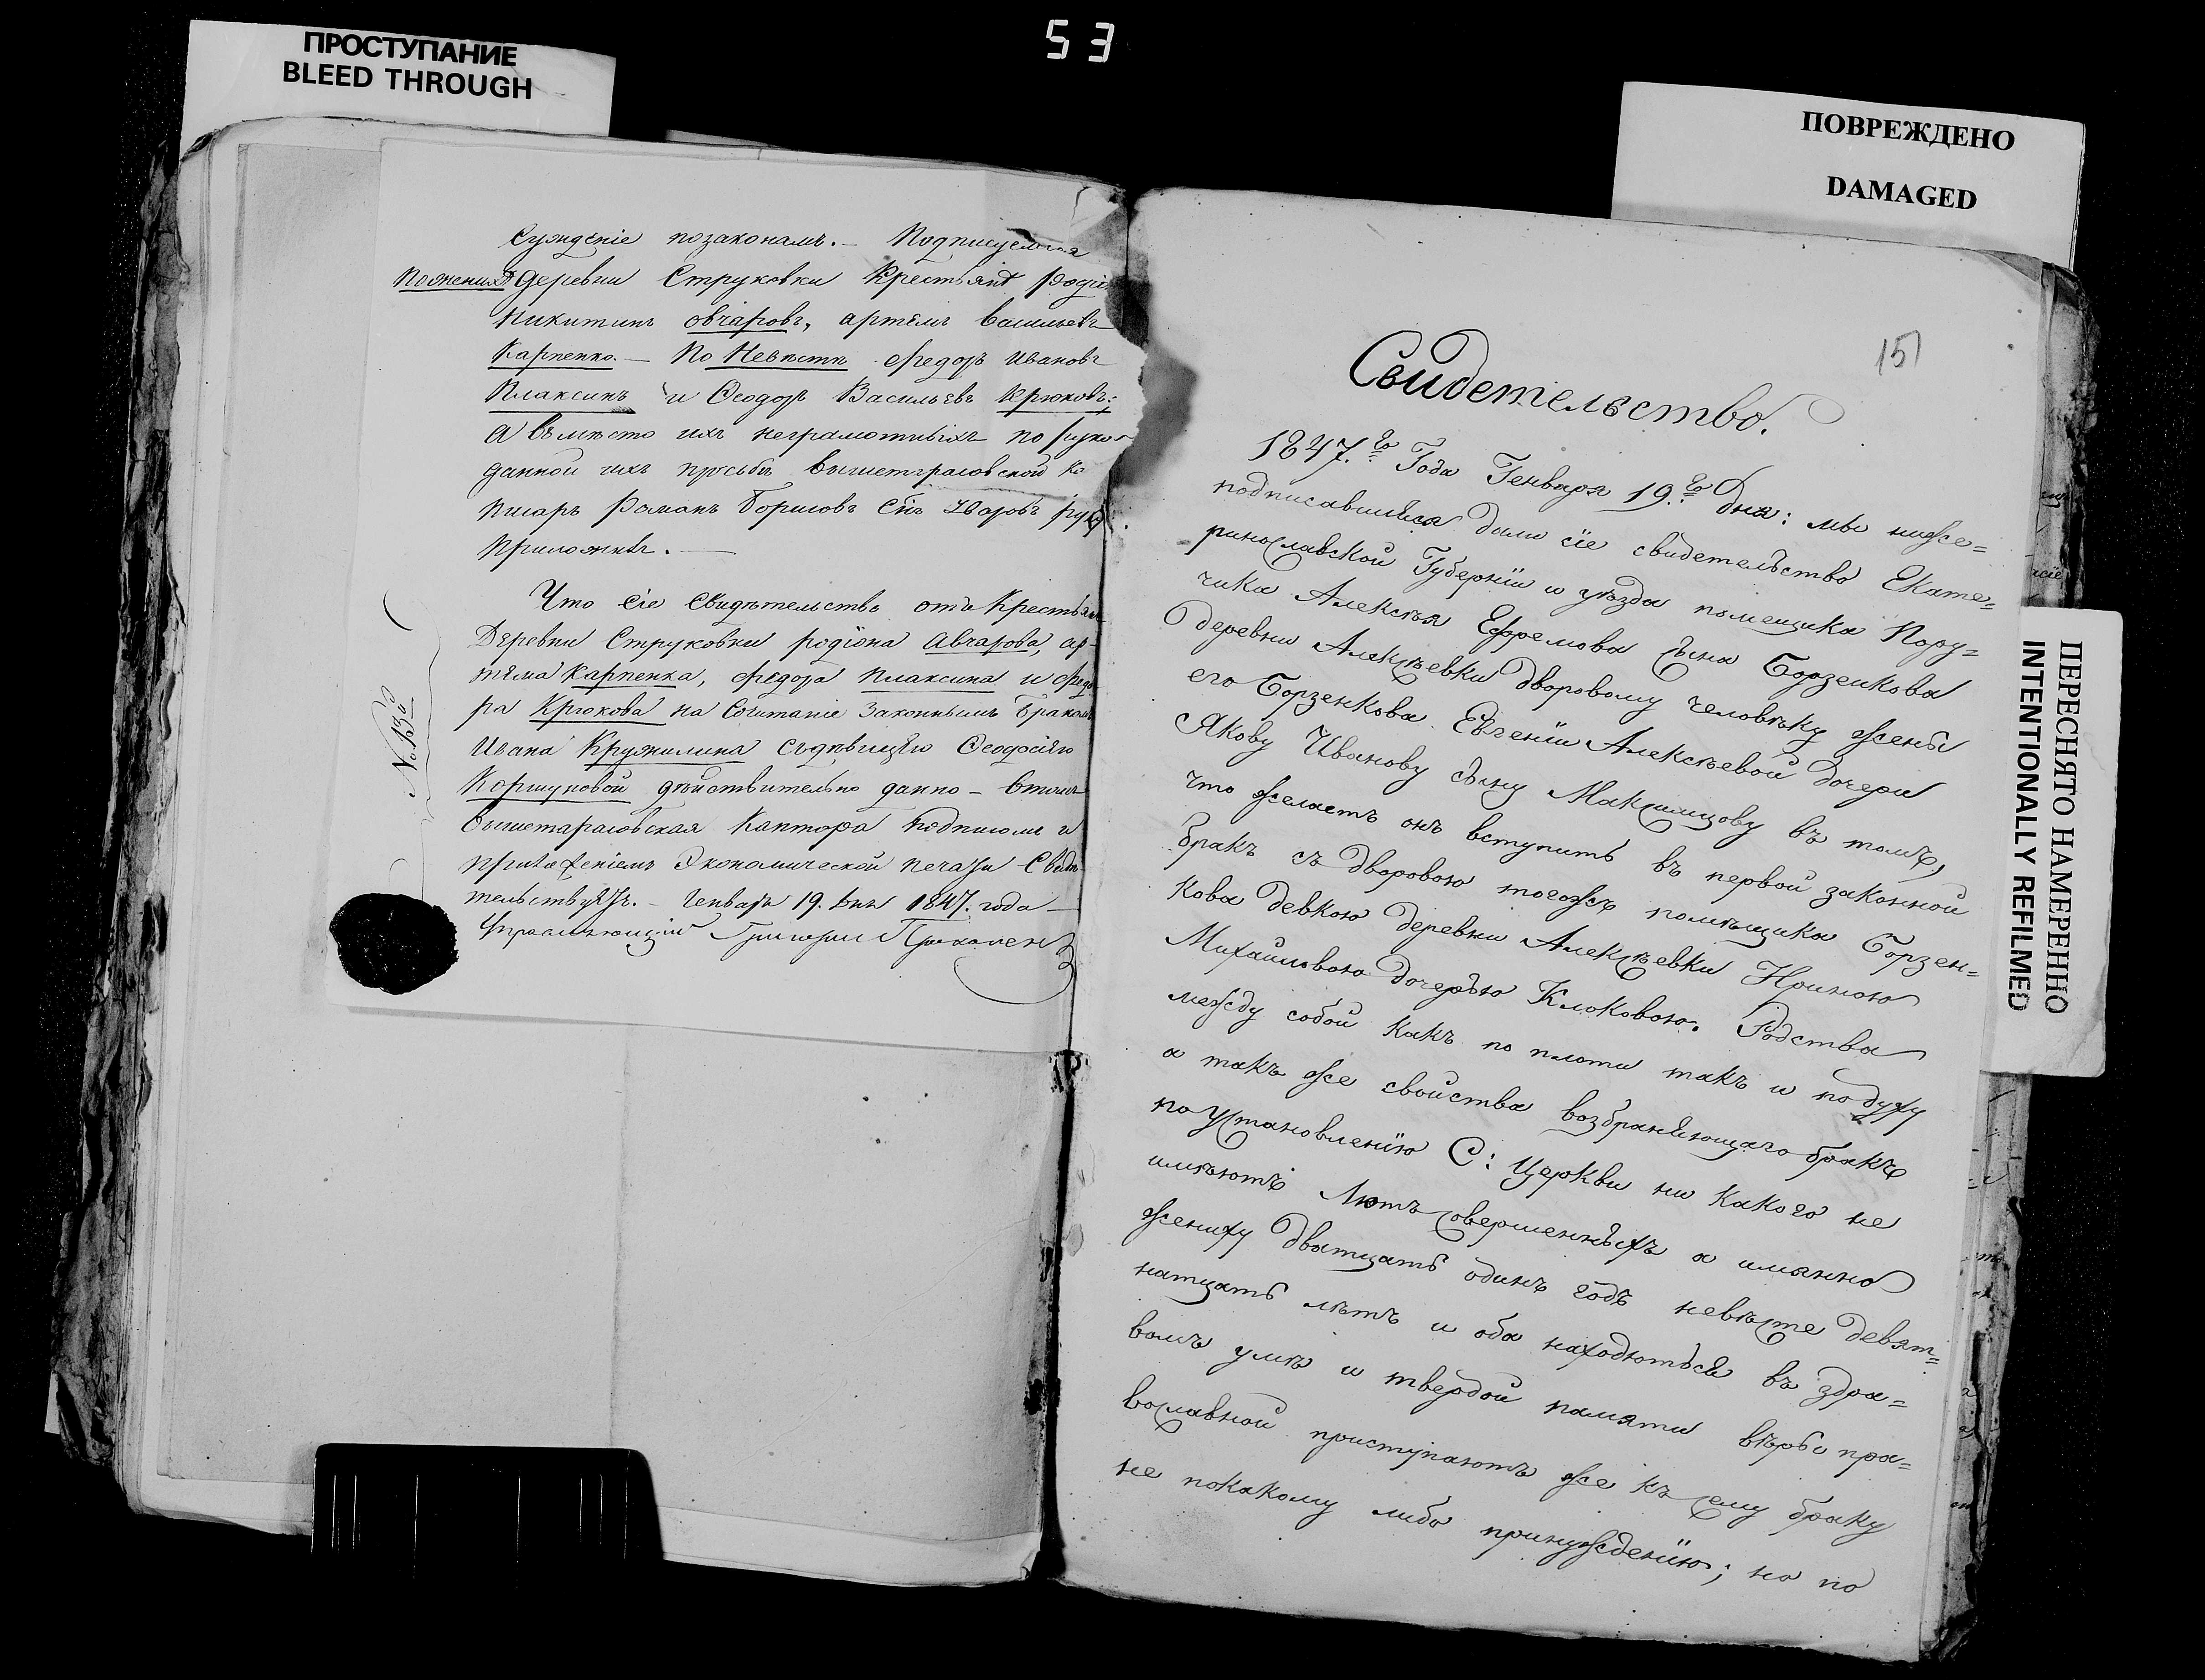 53
ПРОСТУПАНИЕ
BLEED THROUGH
ПОВРЕЖДЕНО
DAMAGED
Сужденіе позаконамъ. — Подписуемся
Поженихѣ деревни Струковки Крестьянѣ Родіо
Никитинъ овчаровъ, артемъ васильевъ
Карпенко. — По Невѣстѣ Федоръ Ивановъ
Плаксинъ и Феодоръ Васильевъ Крюковъ:
а вмѣсто ихъ неграмотныхъ по руко
данной ихъ прозьбѣ вышетарасовской ко
писарь Романъ Борисовъ Сынъ Уваровъ руку
приложилъ. —
Что сіе Свидѣтельство отъ Крестьянъ
Деревни Струковки родіона Авчарова, ар-
тема карпенка, федора Плаксина и федо
ра Крюкова на Сочитаніе Законнымъ Бракомъ
Ивана Кружилина съдѣвицею Феодосіею
Коршуковой дѣйствительно данно — втомъ
вышетарасовская Кантора подписомъ и
приложеніемъ Экономической печати Свидѣ-
тельствуетъ. — Генваря 19. дня 1847. года —
Управляющій Григорій
№ 13й
15
Свидетельство.
1847.го Года Генваря 19.го Дня: мы ниже=
подписавшіяся дали сіе свидетельство Екате=
ринославской Губерніи и уѣзда помещика Пору=
чика Алексѣя Ефремова сына Борзенкова
деревни Алексѣевки дворовому человѣку жены
его Борзенкова Евгеніи Алексѣевой дочери
Якову Иванову сыну Максимову въ томъ,
что желаетъ онъ вступить въ первой законной
бракъ съ дворовою тогожъ помѣщика Борзен=
кова девкою деревни Алексѣевки Ириною
Михайловою дочерью Клоковою. Родства
между собой какъ по плоти такъ и по духу
а такъ же свойства возбраняющаго бракъ
по установленію С: Церкви ни какого не
имѣютъ Лѣтъ совершенныхъ а имянно
жениху дватцать одинъ годъ невѣсте девят=
натцать лѣтъ и оба находютьсы въ здра=
вомъ умѣ и твердой памяти вѣры пра=
вославной приступаютъ же къ сему браку
не покакому либо принужденію; но по
ПЕРЕСНЯТО НАМЕРЕННО
INTENTIONALLY REFILMED